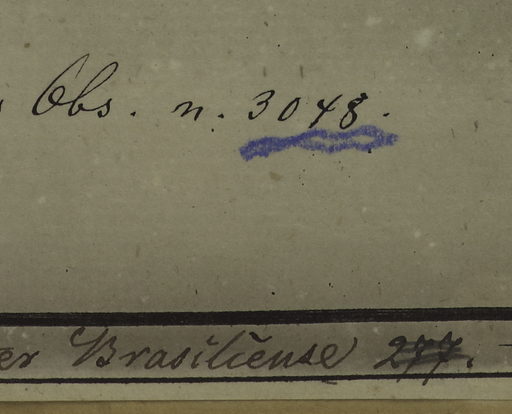 Obs. n. 3048.
er Brasiliense 277.